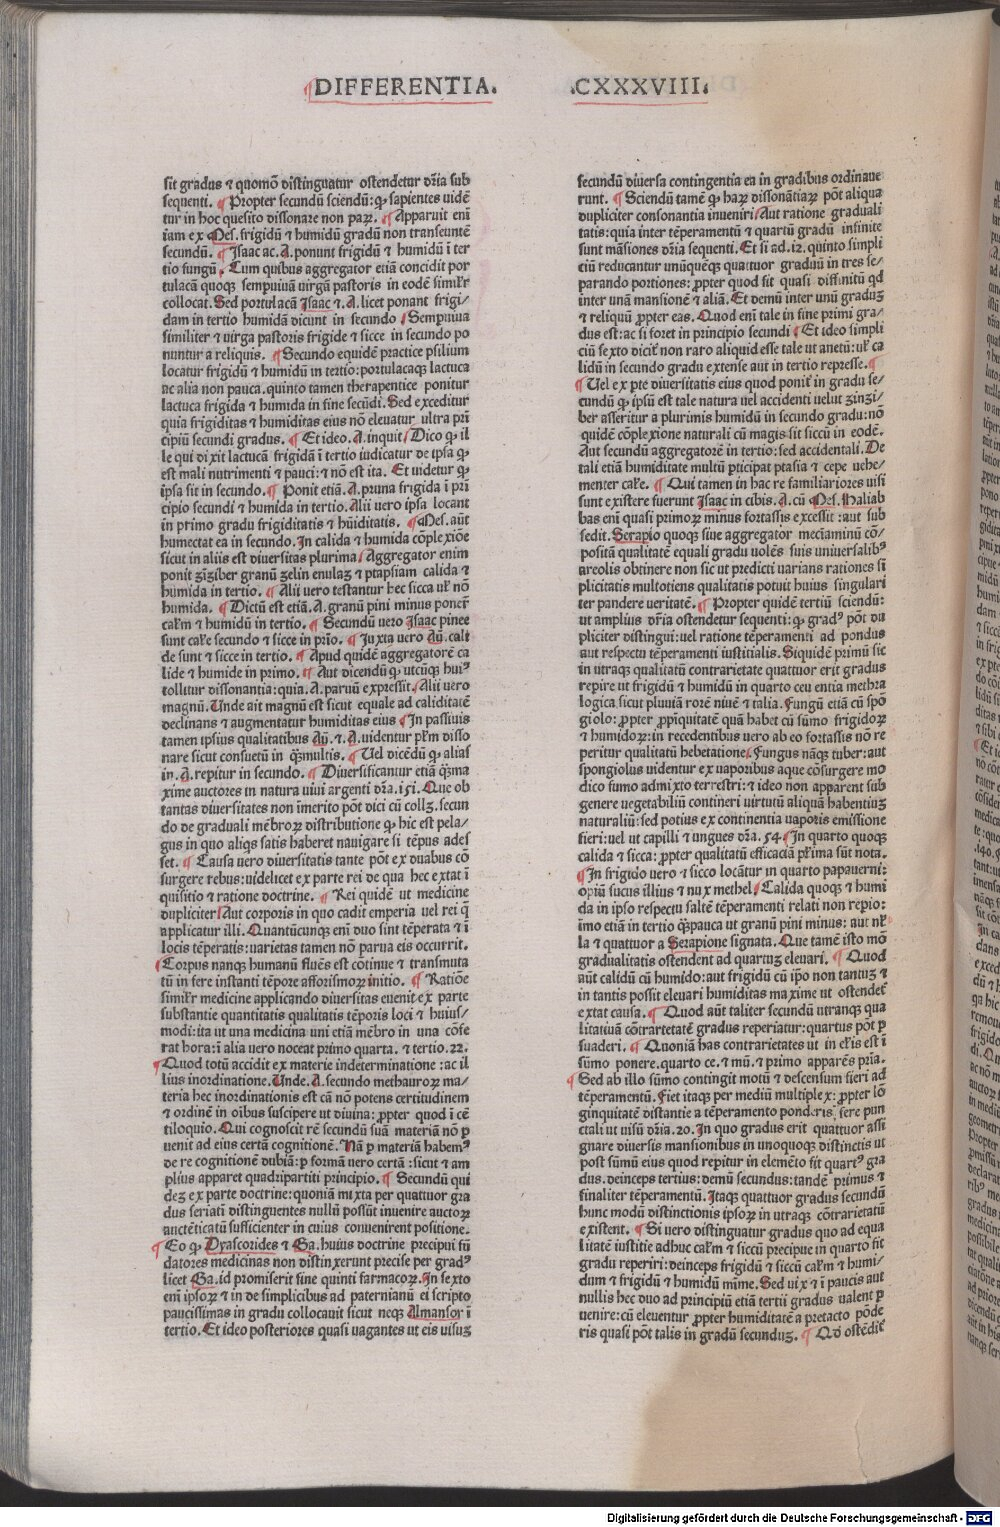 DIFFERENTIA. .CXXXVIII.
sit gradus ⁊ quomõ distinguatur ostendetur dr̃ia sub
sequenti. ¶ Propter secundũ sciendũ: ꝙ sapientes uidẽ
tur in hoc quesito dissonare non paꝝ. ¶ Apparuit enĩ
iam ex Mes. frigidũ ⁊ humidũ gradũ non transeuntẽ
secundũ. ¶ Isaac ac. A. ponunt frigidũ ⁊ humidũ ĩ ter
tio fungũ. Cum quibus aggregator etiã concidit por
tulacã quoqꝫ sempuiuã uirgã pastoris in eodẽ simił'r
collocat. Sed portulacã Isaac ⁊. A. licet ponant frigi/
dam in tertio humidã dicunt in secundo Sempuiua
similiter ⁊ uirga pastoris frigide ⁊ sicce in secundo po
nuntur a reliquis. ¶ Secundo equidẽ practice psilium
locatur frigidũ ⁊ humidũ in tertio: portulacaqꝫ lactuca
ac alia non pauca. quinto tamen therapentice ponitur
lactuca frigida ⁊ humida in fine secũdi. Sed exceditur
quia frigiditas ⁊ humiditas eius nõ eleuatur ultra prĩ
cipiũ secundi gradus. ¶ Et ideo. A. inquit Dico ꝙ il
le qui dixit lactucã frigidã ĩ tertio iudicatur de ipsa ꝙ
est mali nutrimenti ⁊ pauci: ⁊ nõ est ita. Et uidetur ꝙ
ipsa sit in secundo. ¶ Ponit etiã. A. pruna frigida ĩ prĩ
cipio secundi ⁊ humida in tertio. Alii uero ipsa locant
in primo gradu frigiditatis ⁊ hũiditatis. ¶ Mes. aũt
humectat ea in secundo. In calida ⁊ humida cõplexiõe
sicut in aliis est diuersitas plurima Aggregator enim
ponit zĩziber granũ zelin enulaꝫ ⁊ ptapsiam calida ⁊
humida in tertio. ¶ Alii uero testantur hec sicca uł nõ
humida. ¶ Dictũ est etiã. A. granũ pini minus poner̃
całm ⁊ humidũ in tertio. ¶ Secundũ uero Isaac pinee
sunt całe secundo ⁊ sicce in prĩo. ¶ Juxta uero Aũ. cali
de sunt ⁊ sicce in tertio. ¶ Apud quidẽ aggregatorẽ ca
lide ⁊ humide in primo. ¶ Aut dicendũ ꝙ utcũqꝫ huiꝰ
tollitur dissonantia: quia. A. paruũ expressit. Alii uero
magnũ. Unde ait magnũ est sicut equale ad caliditatẽ
declinans ⁊ augmentatur humiditas eius ¶ In passiuis
tamen ipsius qualitatibus Aũ. ⁊. A. uidentur płm disso
nare sicut consuetũ in q̃multis. ¶ Uel dicẽdũ ꝙ alias
in. A. repitur in secundo. ¶ Diuersificantur etiã q̃ma
xime auctores in natura uiui argenti dr̃a. 151. Que ob
tantas diuersitates non ĩmerito põt dici cũ collꝫ. secun
do de graduali mẽbroꝝ distributione ꝙ hic est pela/
gus in quo aliqs satis haberet nauigare si tẽpus ades
set. ¶ Causa uero diuersitatis tante põt ex duabus cõ
surgere rebus: uidelicet ex parte rei de qua hec extat ĩ
quisitio ⁊ ratione doctrine. ¶ Rei quidẽ ut medicine
dupliciter Aut corporis in quo cadit emperia uel rei q̃
applicatur illi. Quantũcunqꝫ enĩ duo sint tẽperata ⁊ ĩ
locis tẽperatis: uarietas tamen nõ parua eis occurrit.
¶ Corpus nanqꝫ humanũ fluẽs est cõtinue ⁊ transmuta
tũ in fere instanti tẽpore assorismoꝝ initio. ¶ Ratiõe
simił'r medicine applicando diuersitas euenit ex parte
substantie quantitatis qualitatis tẽporis loci ⁊ huius/
modi: ita ut una medicina uni etiã mẽbro in una cõfe
rat hora: ĩ alia uero noceat primo quarta. ⁊ tertio. 22.
¶ Quod totũ accidit ex materie indeterminatione: ac il
lius inordinatione. Unde. A. secundo methauroꝝ ma/
teria hec inordinationis est cã nõ potens certitudinem
⁊ ordinẽ in oĩbus suscipere ut diuina: ꝓpter quod ĩ cẽ
tiloquio. Qui cognoscit rẽ secundũ suã materiã nõ ꝑ
uenit ad eius certã cognitionẽ. Nã ꝑ materiã habemꝰ
de re cognitionẽ dubiã: ꝑ formã uero certã: sicut ⁊ am
plius apparet quadripartiti principio. ¶ Secundũ qui
deꝫ ex parte doctrine: quoniã mixta per quattuor gra
dus seriatĩ distinguentes nullũ possũt inuenire auctoꝝ
auctẽticatũ sufficienter in cuius conuenirent positione.
¶ Eo ꝙ Dyascorides ⁊ Ga. huius doctrine precipui fũ
datores medicinas non distinxerunt precise per gradꝰ
licet Ga. id promiserit fine quinti farmacoꝝ. In sexto
enĩ ipsoꝝ ⁊ in de simplicibus ad paternianũ ei scripto
paucissimas in gradu collocauit sicut neqꝫ Almansor ĩ
tertio. Et ideo posteriores quasi uagantes ut eis uisuꝫ
secundũ diuersa contingentia ea in gradibus ordinaue
runt. ¶ Sciendũ tamẽ ꝙ haꝝ dissonãtiaꝝ põt aliqua
dupliciter consonantia inueniri Aut ratione graduali
tatis: quia inter tẽperamentũ ⁊ quartũ gradũ infinite
sunt mãsiones dr̃ia sequenti. Et si ad. 12. quinto simpli
ciũ reducantur unũquẽqꝫ quatuor graduũ in tres se/
parando portiones: ꝓpter quod fit quasi diffinitũ qd
inter unã mansionẽ ⁊ aliã. Et demũ inter unũ graduꝫ
⁊ reliquũ ꝓpter eas. Quod enĩ tale in fine primi gra/
dus est: ac si foret in principio secundi ¶ Et ideo simpli
ciũ sexto dicit̃ non raro aliquid esse tale ut anetũ: uł ca
lidũ in secundo gradu extense aut in tertio represse. ¶
¶ Uel ex pte diuersitatis eius quod ponit̃ in gradu se/
cundũ ꝙ ipsũ est tale natura uel accidenti uelut zinzi/
ber asseritur a plurimis humidũ in secundo gradu: nõ
quidẽ cõplexione naturali cũ magis sit siccũ in eodẽ.
Aut secundũ aggregatorẽ in tertio: sed accidentali. De
tali etiã humiditate multũ ꝑticipat ptasia ⁊ cepe uehe/
menter całe. ¶ Qui tamen in hac re familiariores uisi
sunt existere fuerunt Isaac in cibis. A. cũ Mes. Haliab
bas enĩ quasi primoꝝ minus fortassis excessit: aut sub
sedit. Serapio quoqꝫ siue aggregator meciaminũ cõ/
positã qualitatẽ equali gradu uolẽs suis uniuersalibꝰ
areolis obtinere non sic ut predicti uarians rationes sĩ
plicitatis multotiens qualitatis potuit huius singulari
ter pandere ueritatẽ. ¶ Propter quidẽ tertiũ sciendũ:
ut amplius dr̃ia ostendetur sequenti: ꝙ gradꝰ põt du
pliciter distingui: uel ratione tẽperamenti ad pondus
aut respectu tẽperamenti iustitialis. Siquidẽ primũ sic
in utraqꝫ qualitatũ contrarietate quattuor erit gradus
repire ut frigidũ ⁊ humidũ in quarto ceu entia methra
logica sicut pluuiã rorẽ niuẽ ⁊ talia. Fungũ etiã cũ spõ
giolo: ꝓpter ꝓpĩquitatẽ quã habet cũ sũmo frigidoꝝ
⁊ humidoꝝ: in recedentibus uero ab eo fortassis nõ re
peritur qualitatũ hebetatione. Fungus nãqꝫ tuber: aut
spongiolus uidentur ex uaporibus aque cõsurgere mo
dico fumo admixto terrestri: ⁊ ideo non apparent sub
genere uegetabiliũ contineri uirtutũ aliquã habentiuꝫ
naturaliũ: sed potius ex continentia uaporis emissione
fieri: uel ut capilli ⁊ ungues dr̃a. 54 ¶ In quarto quoqꝫ
calida ⁊ sicca: ꝓpter qualitatũ efficaciã płima sũt nota.
¶ In frigido uero ⁊ sicco locãtur in quarto papauerni:
opiũ sucus illius ⁊ nux methel Calida quoqꝫ ⁊ humi
da in ipso respectu saltẽ tẽperamenti relati non reꝑio:
imo etiã in tertio q̃pauca ut granũ pini minus: aut nł
la ⁊ quattuor a Serapione signata. Que tamẽ isto mõ
gradualitatis ostendent ad quartuꝫ eleuari. ¶ Quod
aũt calidũ cũ humido: aut frigidũ cũ ip̃o non tantuꝫ ⁊
in tantis possit eleuari humiditas maxime ut ostendet̃
extat causa. ¶ Quod aũt taliter secundũ utranqꝫ qua
litatiuã cõtrarietatẽ gradus reperiatur: quartus põt ꝑ
suaderi. ¶ Quoniã has contrarietates ut in eł'is est ĩ
sũmo ponere. quarto ce. ⁊ mũ. ⁊ primo apparẽs prĩa.
¶ Sed ab illo sũmo contingit motũ ⁊ descensum fieri ad
tẽperamentũ. Fiet itaqꝫ per mediũ multiplex: ꝓpter lõ
ginquitatẽ distantie a tẽperamento ponderis fere pun
ctali ut uisũ dr̃ia. 20. In quo gradus erit quattuor assi
gnare diuersis mansionibus in unoquoqꝫ distinctis ut
post sũmũ eius quod repitur in elemẽto fit quartꝰ gra
dus. deinceps tertius: demũ secundus: tandẽ primus ⁊
finaliter tẽperamentũ. Itaqꝫ quattuor gradus secundũ
hunc modũ distinctionis ipsoꝝ in utraqꝫ cõtrarietatũ
existent. ¶ Si uero distinguatur gradus quo ad equa
litatẽ iustitie adhuc całm ⁊ siccũ precipue in quarto fit
gradu reperiri: deinceps frigidũ ⁊ siccũ całm ⁊ humi/
dum ⁊ frigidũ ⁊ humidũ mĩme. Sed uix ⁊ ĩ paucis aut
nullis hec duo ad principiũ etiã tertii gradus ualent ꝑ
uenire: cũ eleuentur ꝓpter humiditatẽ a pretacto põde
ris quasi põt talis in gradũ secunduꝫ. ¶ Qd ostẽdit̃
Digitalisierung gefördert durch die Deutsche Forschungsgemeinschaft - DFG